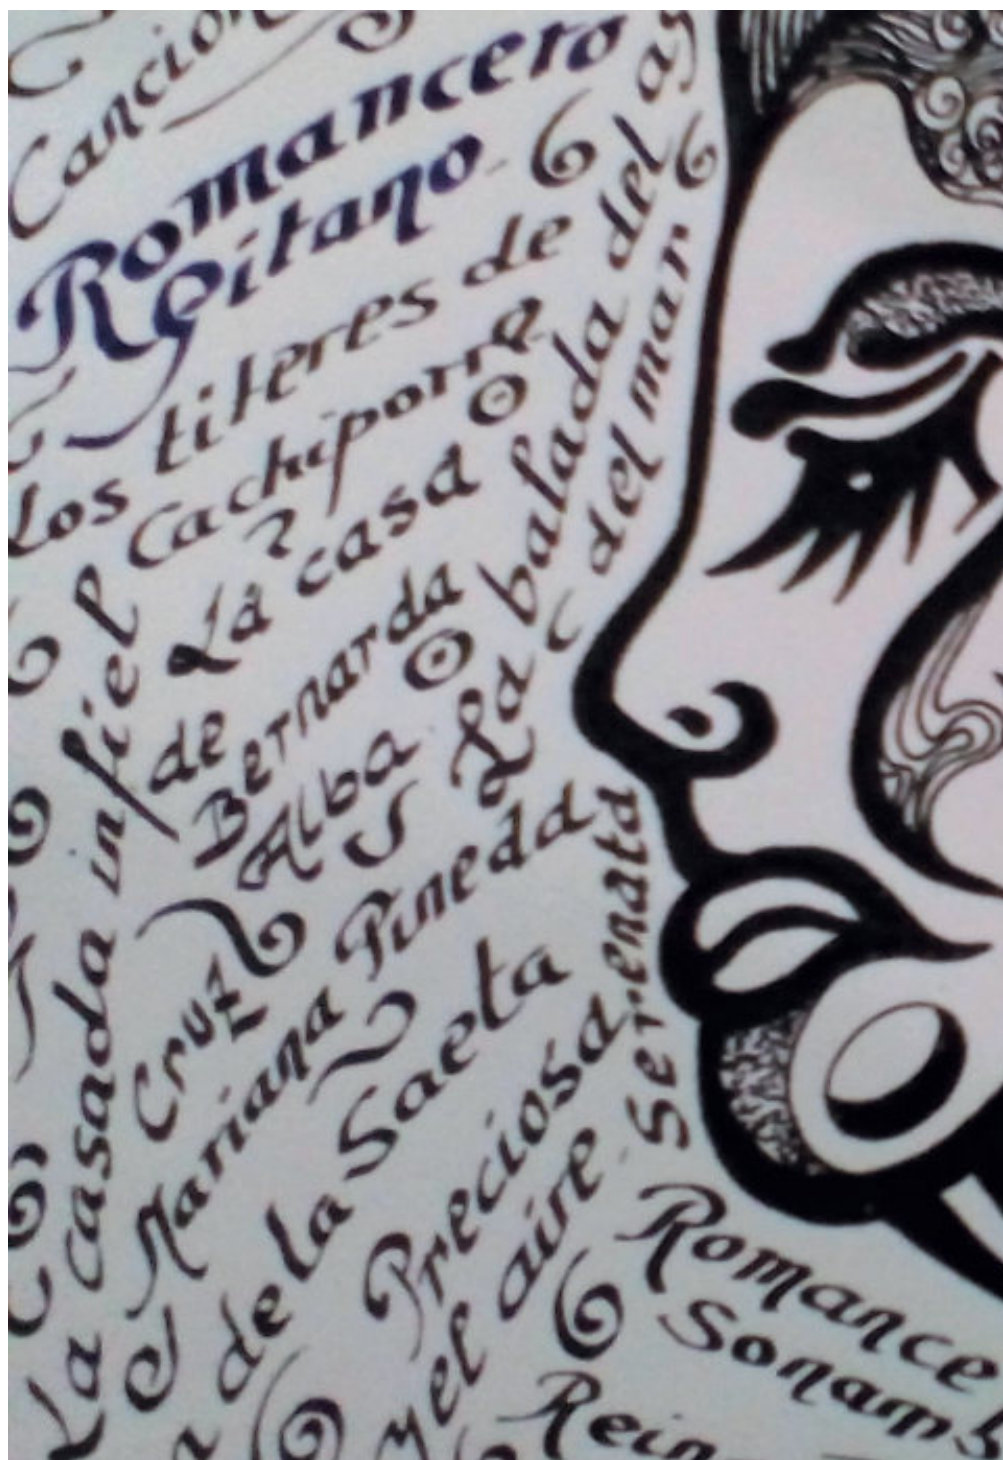 Cancion
Romancero
Gitano
Los titeres de
Cachiporra
La casa
de
Bernarda
Alba
La balada del
del mar
La casada infiel
Cruz
Mariana Pineda
de la Saeta
Preciosa
y el aire
Serenata
Romance
Sonamb
Rein